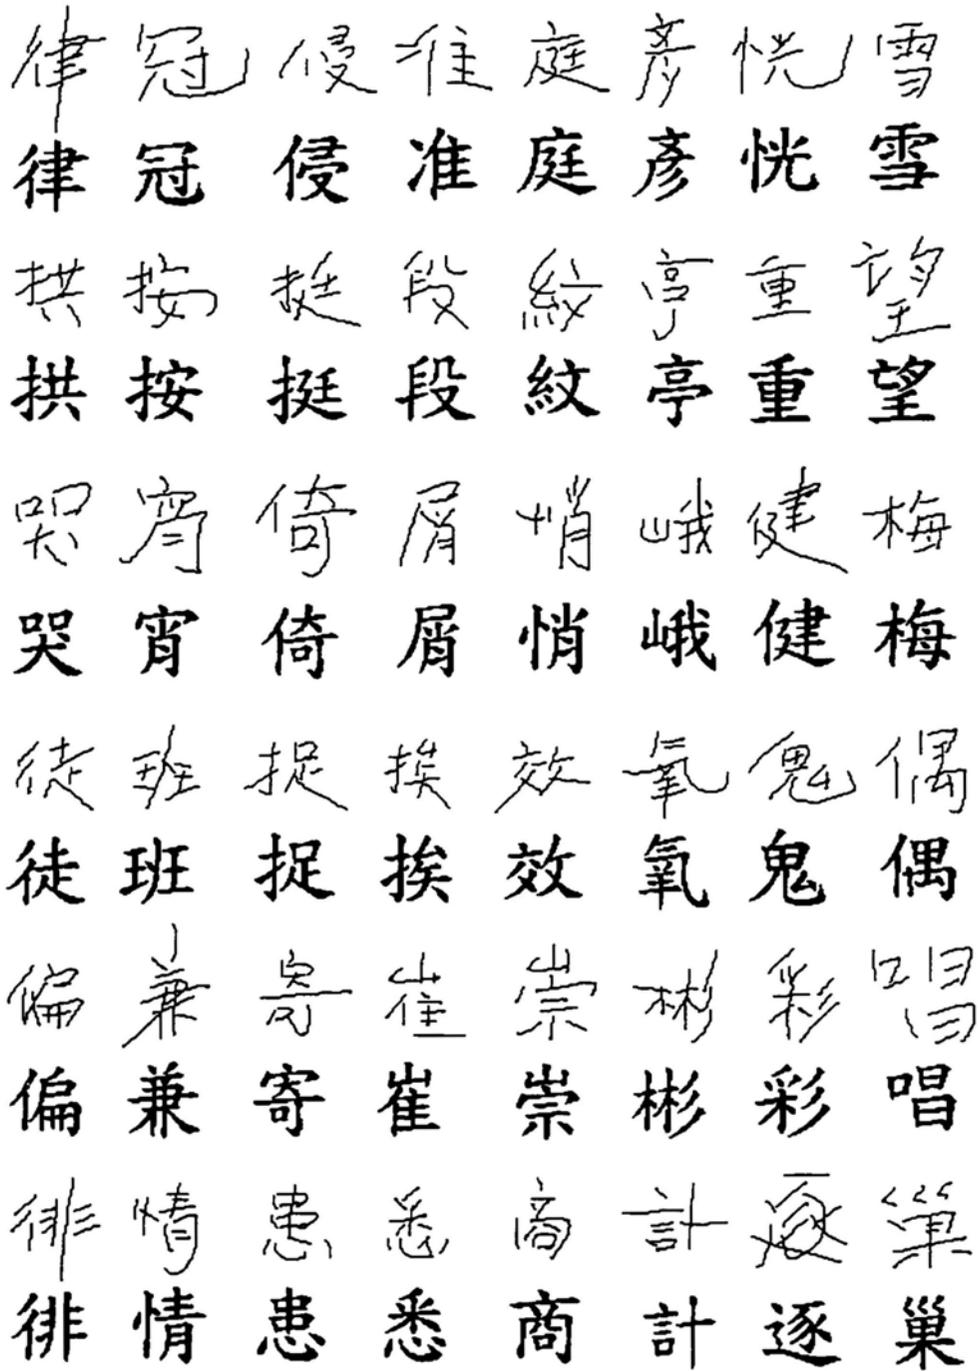 律 冠 侵 准 庭 彥 恍 雪
律 冠 侵 准 庭 彥 恍 雪
拱 按 挺 段 紋 亭 重 望
拱 按 挺 段 紋 亭 重 望
哭 宵 倚 屑 悄 峨 健 梅
哭 宵 倚 屑 悄 峨 健 梅
徒 班 捉 挨 效 氧 鬼 偶
徒 班 捉 挨 效 氧 鬼 偶
偏 兼 寄 崔 崇 彬 彩 唱
偏 兼 寄 崔 崇 彬 彩 唱
徘 情 患 悉 商 計 逐 巢
徘 情 患 悉 商 計 逐 巢